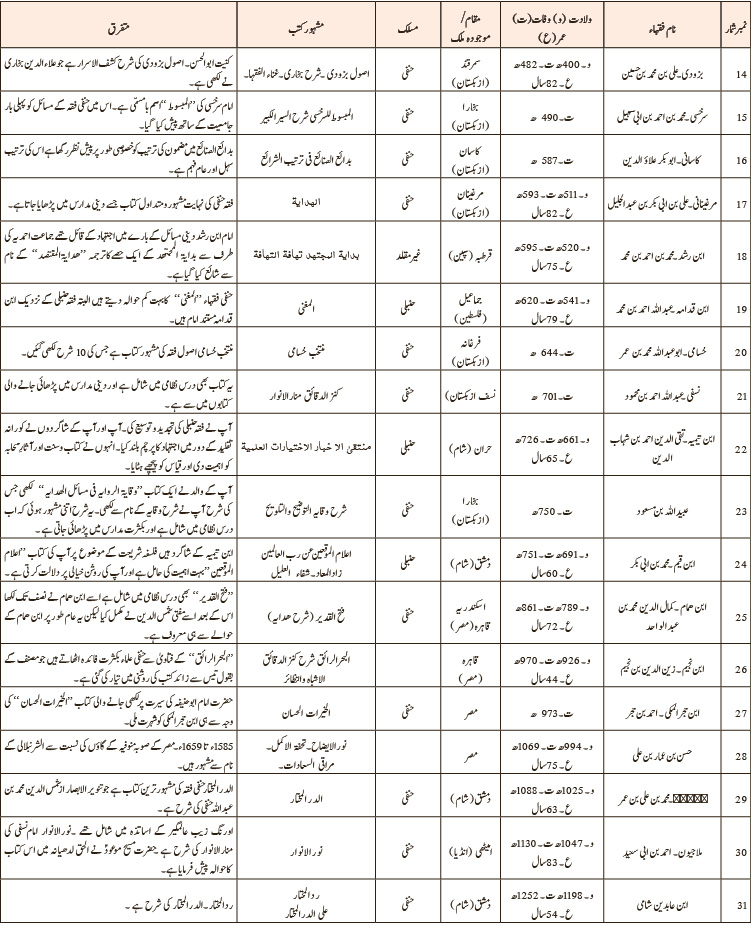 نمبرشمار نام فقہاء ولادت (و) وفات(ت) عمر(ع) مقام/ موجودہ ملک مسلک مشہور کتب متفرق
14 بزدوی۔علی بن محمد بن حسین و۔400ھ ت۔482ھ ع۔82سال سمرقند (ازبکستان) حنفی اصول بزدوی۔شرح بخاری۔غناء الفقہا۔ کنیت ابوالحسن۔اصول بزدوی کی شرح کشف الاسرار ہے جو علاء الدین بخاری نے لکھی ہے۔
15 سرخسی۔محمد بن احمد بن ابی سہیل ت۔490 ھ بخارا (ازبکستان) حنفی المبسوط للسرخسی شرح السیر الکبیر امام سرخسی کی ’’المبسوط‘‘ اسم بامسمّٰی ہے۔اس میں حنفی فقہ کے مسائل کو پہلی بار جامعیت کے ساتھ پیش کیا گیا۔
16 کاسانی۔ابوبکر علاؤ الدین ت۔587 ھ کاسان (ازبکستان) حنفی بدائع الصنائع فی ترتیب الشرائع بدائع الصنائع میں مضمون کی ترتیب کو خصوصی طور پر پیش نظر رکھا ہے اس کی ترتیب سہل اور عام فہم ہے۔
17 مرغینانی۔علی بن ابی بکر بن عبدالجلیل و۔511ھ ت۔593ھ ع۔82سال مرغینان (ازبکستان) حنفی الہدایۃ فقہ حنفی کی نہایت مشہور ومتداول کتاب جسے دینی مدارس میں پڑھایا جاتا ہے۔
18 ابن رشد۔محمد بن احمد بن محمد و۔520ھ ت۔595ھ ع۔75سال قرطبہ (سپین) غیرمقلد بداية المجتهد تهافة التهافة امام ابن رشد دینی مسائل کے بارے میں اجتہاد کے قائل تھے جماعت احمدیہ کی طرف سے بدایۃ المجتھد کے ایک حصے کا ترجمہ ’’ھدایۃ المقتصد‘‘ کے نام سے شائع کیا گیا ہے۔
19 ابن قدامہ۔عبداللہ احمد بن محمد و۔541ھ ت۔620ھ ع۔79سال جماعیل (فلسطین) حنبلی المغنی حنفی فقہاء ’’المغنی‘‘ کا بہت کم حوالہ دیتے ہیں البتہ فقہ حنبلی کے نزدیک ابن قدامہ مستند امام ہیں۔
20 حسامی۔ابوعبداللہ محمد بن عمر ت۔644 ھ فرغانہ (ازبکستان) حنفی منتخب حسامی منتخب حسامی اصول فقہ کی مشہور کتاب ہے جس کی 10 شرح لکھی گئیں۔
21 نسفی۔عبداللہ احمد بن محمود ت۔701 ھ نسف ازبکستان) حنفی کنز الدقائق منار الانوار یہ کتاب بھی درس نظامی میں شامل ہے اور دینی مدارس میں پڑھائی جانے والی کتابوں میں سے ہے۔
22 ابن تیمیہ۔تقی الدین احمد بن شہاب الدین و۔661ھ ت۔726ھ ع۔65سال حران (شام) حنبلی منتقیٰ الاخبار الاختيارات العلمية آپ نے فقہ حنبلی کی تجدید وتوسیع کی۔آپ اور آپ کے شاگردوں نے کورانہ تقلید کے دور میں اجتہاد کا پرچم بلند کیا۔انہوں نے کتاب وسنت اور آثار صحابہ کو اہمیت دی اور قیاس کو پیچھے ہٹایا۔
23 عبیداللہ بن مسعود ت۔750ھ بخارا (ازبکستان) حنفی شرح وقایہ التوضیح والتلویح آپ کے والد نے ایک کتاب ’’وقایۃ الروایہ فی مسائل الھدایہ‘‘ لکھی جس کی شرح آپ نے شرح وقایہ کے نام سے لکھی۔یہ شرح اتنی مشہور ہوئی کہ اب درس نظامی میں شامل ہے اور بکثرت مدارس میں پڑھائی جاتی ہے۔
24 ابن قیم۔محمد بن ابی بکر و۔691ھ ت۔751ھ ع۔60سال دمشق(شام) حنبلی اعلام الموقعین عن رب العالمین زادالمعاد۔شفاء العلیل ابن تیمیہ کے شاگرد ہیں فلسفہ شریعت کے موضوع پر آپ کی کتاب ’’اعلام الموقعین‘‘ بہت اہمیت کی حامل ہے اور آپ کی روشن خیالی پر دلالت کرتی ہے۔
25 ابن ھمام۔کمال الدین محمد بن عبدالواحد و۔789ھ ت۔861ھ ع۔72سال اسکندریہ قاہرہ(مصر) حنفی فتح القدیر (شرح ھدایہ) ’’فتح القدیر‘‘ بھی درس نظامی میں شامل ہے اسے ابن ھمام نے نصف تک لکھا اس کے بعد اسے مفتی شمس الدین نے مکمل کیا لیکن یہ عام طور پر ابن ھمام کے حوالے سے ہی معروف ہے۔
26 ابن نجیم۔زین الدین بن نجیم و۔926ھ ت۔970ھ ع۔44سال قاہرہ (مصر) حنفی البحر الرائق شرح کنز الدقائق الاشباہ والنظائر ’’البحر الرائق‘‘ کے فتاویٰ سے حنفی علماء بکثرت فائدہ اٹھاتے ہیں جو مصنف کے بقول تیس سے زائد کتب کی روشنی میں تیار کی گئی ہے۔
27 ابن حجر المکی۔احمد بن حجر ت۔973 ھ مصر حنفی الخیرات الحسان حضرت امام ابوحنیفہ کی سیرت پر لکھی جانے والی کتاب ’’الخیرات الحسان‘‘ کی وجہ سے ہی ابن حجر المکی کو شہرت ملی۔
28 حسن بن عمار بن علی و۔994ھ ت۔1069ھ ع۔75سال مصر حنفی نورالایضاح۔تحفۃ الاکمل۔ مراقی السعادات۔ 1585ء تا 1659ء۔مصر کے صوبہ منوفیہ کے گاؤں کی نسبت سے الشرنبلالی کے نام سے مشہور ہیں۔
29 ۔محمد بن علی بن عمر و۔1025ھ ت۔1088ھ ع۔63سال دمشق(شام) حنفی الدر المختار الدرالمختار حنفی فقہ کی مشہور ترین کتاب ہے جو تنویر الابصار از شمس الدین محمد بن عبداللہ حنفی کی شرح ہے۔
30 ملاجیون۔احمد بن ابی سعید و۔1047ھ ت۔1130ھ ع۔83سال امیٹھی (انڈیا) حنفی نورالانوار اورنگ زیب عالمگیر کے اساتذہ میں شامل تھے۔نورالانوار امام نسفی کی منارالانوار کی شرح ہے۔حضرت مسیح موعودؑ نے الحق لدھیانہ میں اس کتاب کا حوالہ پیش فرمایا ہے۔
31 ابن عابدین شامی و۔1198ھ ت۔1252ھ ع۔54سال دمشق(شام) حنفی ردالمختار علی الدرالمختار ردالمختار۔الدرالمختار کی شرح ہے۔